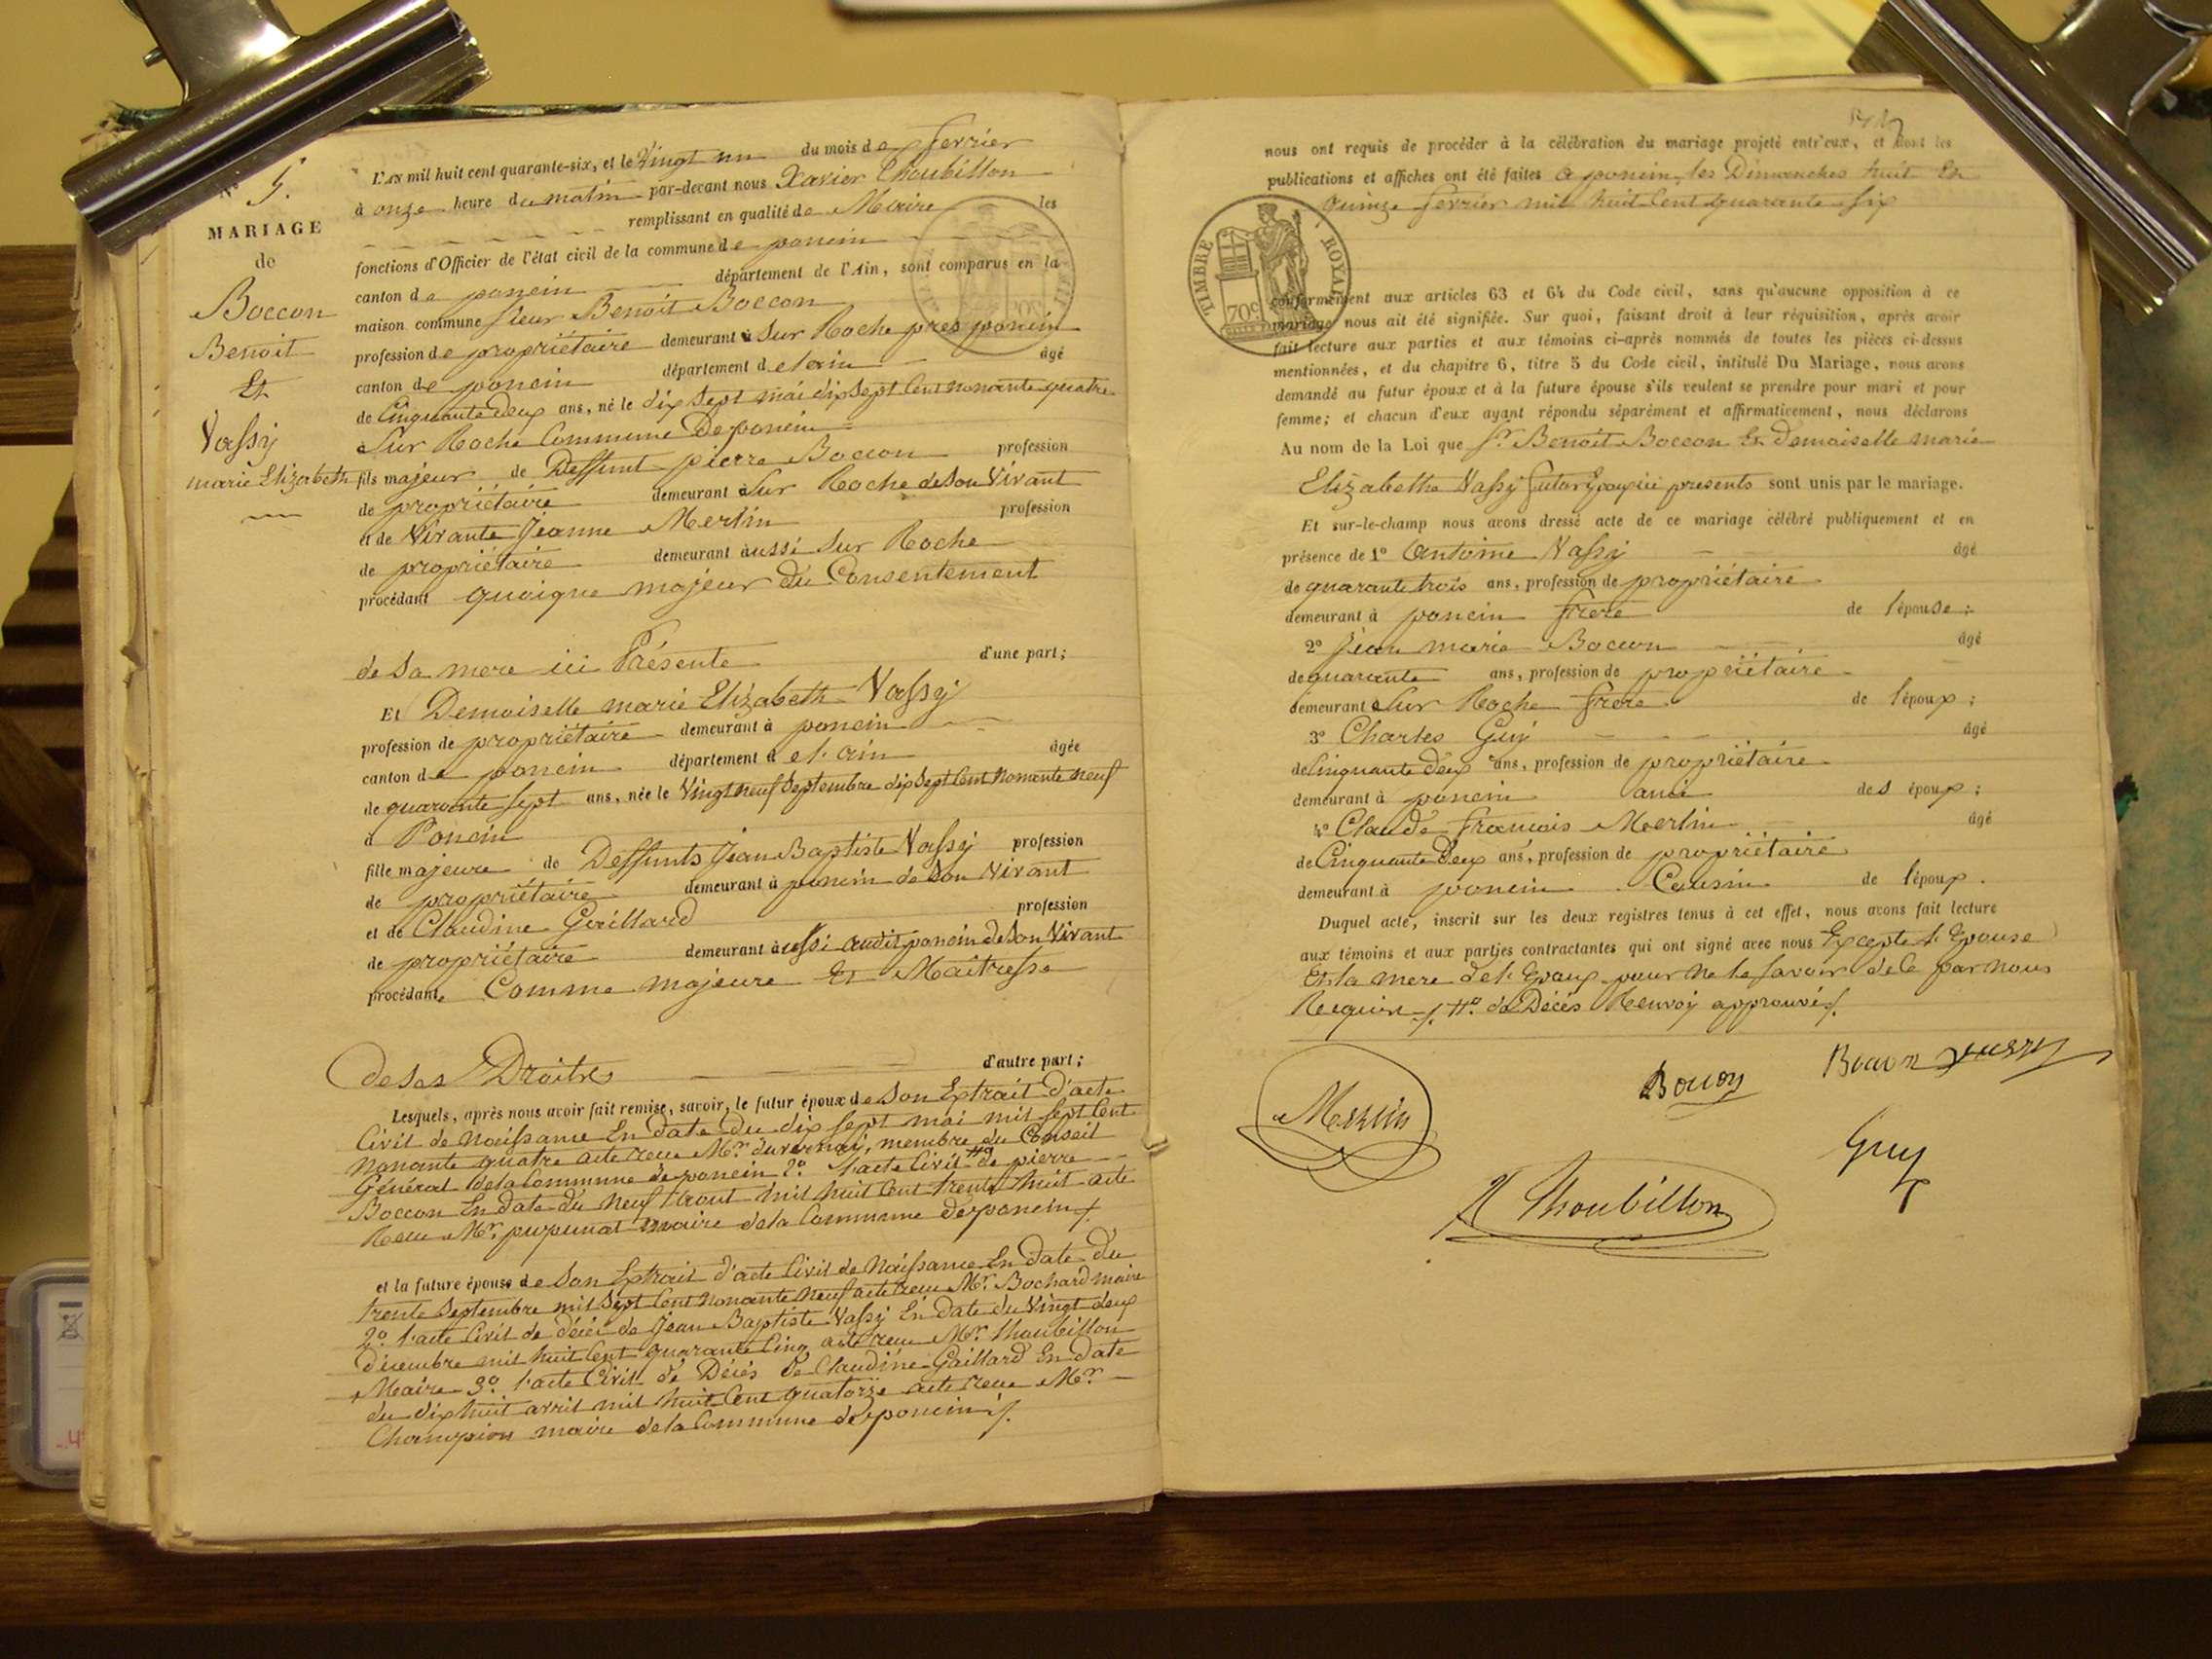 N° 5.
MARIAGE
de
Boccon
Benoit
Et
Vassy
marie Elizabeth
L'AN mil huit cent quarante-six, et le Vingt un du mois de fevrier
à onze heure du matin par-devant nous Xavier Thoubillon
remplissant en qualité de Maire les
fonctions d'Officier de l'état civil de la commune de poncin
canton de poncin département de l'Ain, sont comparus en la
maison commune sieur Benoit Boccon
profession de propriétaire demeurant à Sur Roche pres poncin
canton de poncin département de lain âgé
de Cinquante deux ans, né le dix sept mai dix sept Cent nonante quatre
à Sur Roche Commune De poncin
fils majeur de Deffunt pierre Boccon profession
de propriétaire demeurant à Sur Roche de son Vivant
et de Vivante Jeanne Merlin profession
de propriétaire demeurant à aussi Sur Roche
procédant quoique majeur du Consentement
de sa mere ici Présente d'une part;
Et Demoiselle marie Elizabeth Vassy
profession de propriétaire demeurant à poncin
canton de poncin département de l'ain âgée
de quarante sept ans, née le Vingt neuf Septembre dix Sept Cent Nonante neuf
à Poncin
fille majeure de Deffunts Jean Baptiste Vassy profession
de propriétaire demeurant à poncin de Son Vivant
et de Claudine Gaillard profession
de propriétaire demeurant à aussi audit poncin de Son Vivant
procédante Comme majeure Et Maitresse
de ses Droits d'autre part;
Lesquels, après nous avoir fait remise, savoir, le futur époux de Son Extrait d'acte
Civil de Naissance En date du dix sept mai mil sept Cent
Nonante quatre acte recu Mr. duvernay, membre du Conseil
Général de la Commune de poncin 2° l'acte Civil # de pierre
Boccon En date du neuf aout mil huit Cent trente huit acte
Recu Mr. pupunat maire de la Commune de poncin
et la future épouse de Son Extrait d'acte Civil de Naissance En date du
trente Septembre mil Sept Cent Nonante Neuf acte recu Mr. Bochard maire
2° l'acte Civil de décès de Jean Baptiste Vassy En date du Vingt deux
décembre mil huit Cent quarante Cinq acte recu Mr. thoubillon
Maire 3° l'acte Civil de Décès de Claudine Gaillard En date
du dix huit avril mil huit Cent quatorze acte recu Mr.
Champion maire de la Commune de poncin
nous ont requis de procéder à la célébration du mariage projeté entr'eux, et dont les
publications et affiches ont été faites a poncin, les Dimanches huit Et
quinze fevrier mil huit Cent quarante Six
TIMBRE ROYAL
70c
conformément aux articles 63 et 64 du Code civil, sans qu'aucune opposition à ce
mariage nous ait été signifiée. Sur quoi, faisant droit à leur réquisition, après avoir
fait lecture aux parties et aux témoins ci-après nommés de toutes les pièces ci-dessus
mentionnées, et du chapitre 6, titre 5 du Code civil, intitulé Du Mariage, nous avons
demandé au futur époux et à la future épouse s'ils veulent se prendre pour mari et pour
femme; et chacun d'eux ayant répondu séparément et affirmativement, nous déclarons
Au nom de la Loi que Sr. Benoit Boccon Et Demoiselle marie
Elizabethe Vassy futur Epoux ici presents sont unis par le mariage.
Et sur-le-champ nous avons dressé acte de ce mariage célébré publiquement et en
présence de 1° Antoine Vassy âgé
de quarante trois ans, profession de propriétaire
demeurant à poncin frere de l'épouse;
2° Jean marie Boccon âgé
de quarante ans, profession de propriétaire
demeurant à Sur Roche frere de l'époux;
3° Charles Guy âgé
de Cinquante deux ans, profession de propriétaire
demeurant à poncin ami des époux;
4° Claude francois Merlin âgé
de Cinquante deux ans, profession de propriétaire
demeurant à poncin Cousin de l'époux.
Duquel acte, inscrit sur les deux registres tenus à cet effet, nous avons fait lecture
aux témoins et aux parties contractantes qui ont signé avec nous Excepté l'Epouse
Et la mere de l'Epoux pour ne le savoir de ce par nous
Requise #. de Décès Renvoy approuvé
Merlin
Bocon
Bocon
Guy
Thoubillon